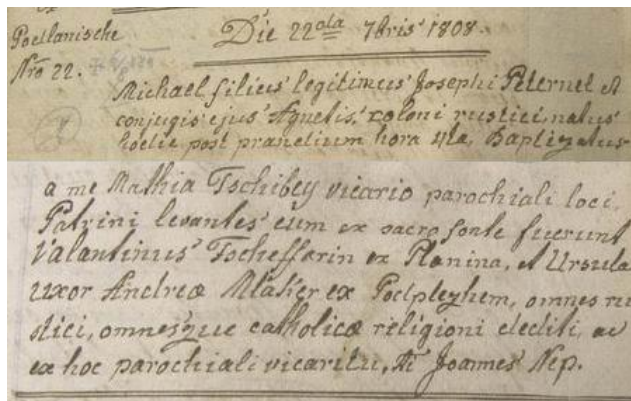 Podlanische
Nro 22.
Die 22da 7bris 1808.
Michael filius legitimus Josephi Peternel et
conjugis ejus Agnetis, coloni rustici, natus
hodie post prandium hora 4ta, Baptizatus
a me Mathia Tschibey vicario parochiali loci.
Patrini levantes eum ex sacro fonte fuerunt
Valantinus Tschefferin ex Planina, et Ursula
uxor Andreæ Mlaker ex Podpleyhem, omnes ru
stici, omnesque catholicæ religioni dediti, ac
ex hoc parochiali vicariatu, Joannes Nep.